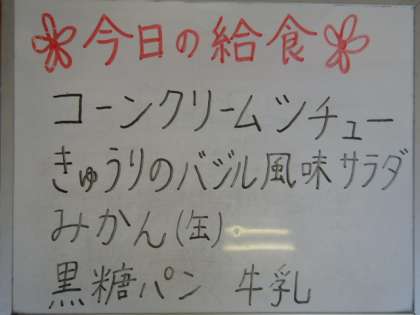 今日の給食
コーンクリームシチュー
きゅうりのバジル風味サラダ
みかん(缶)
黒糖パン 牛乳